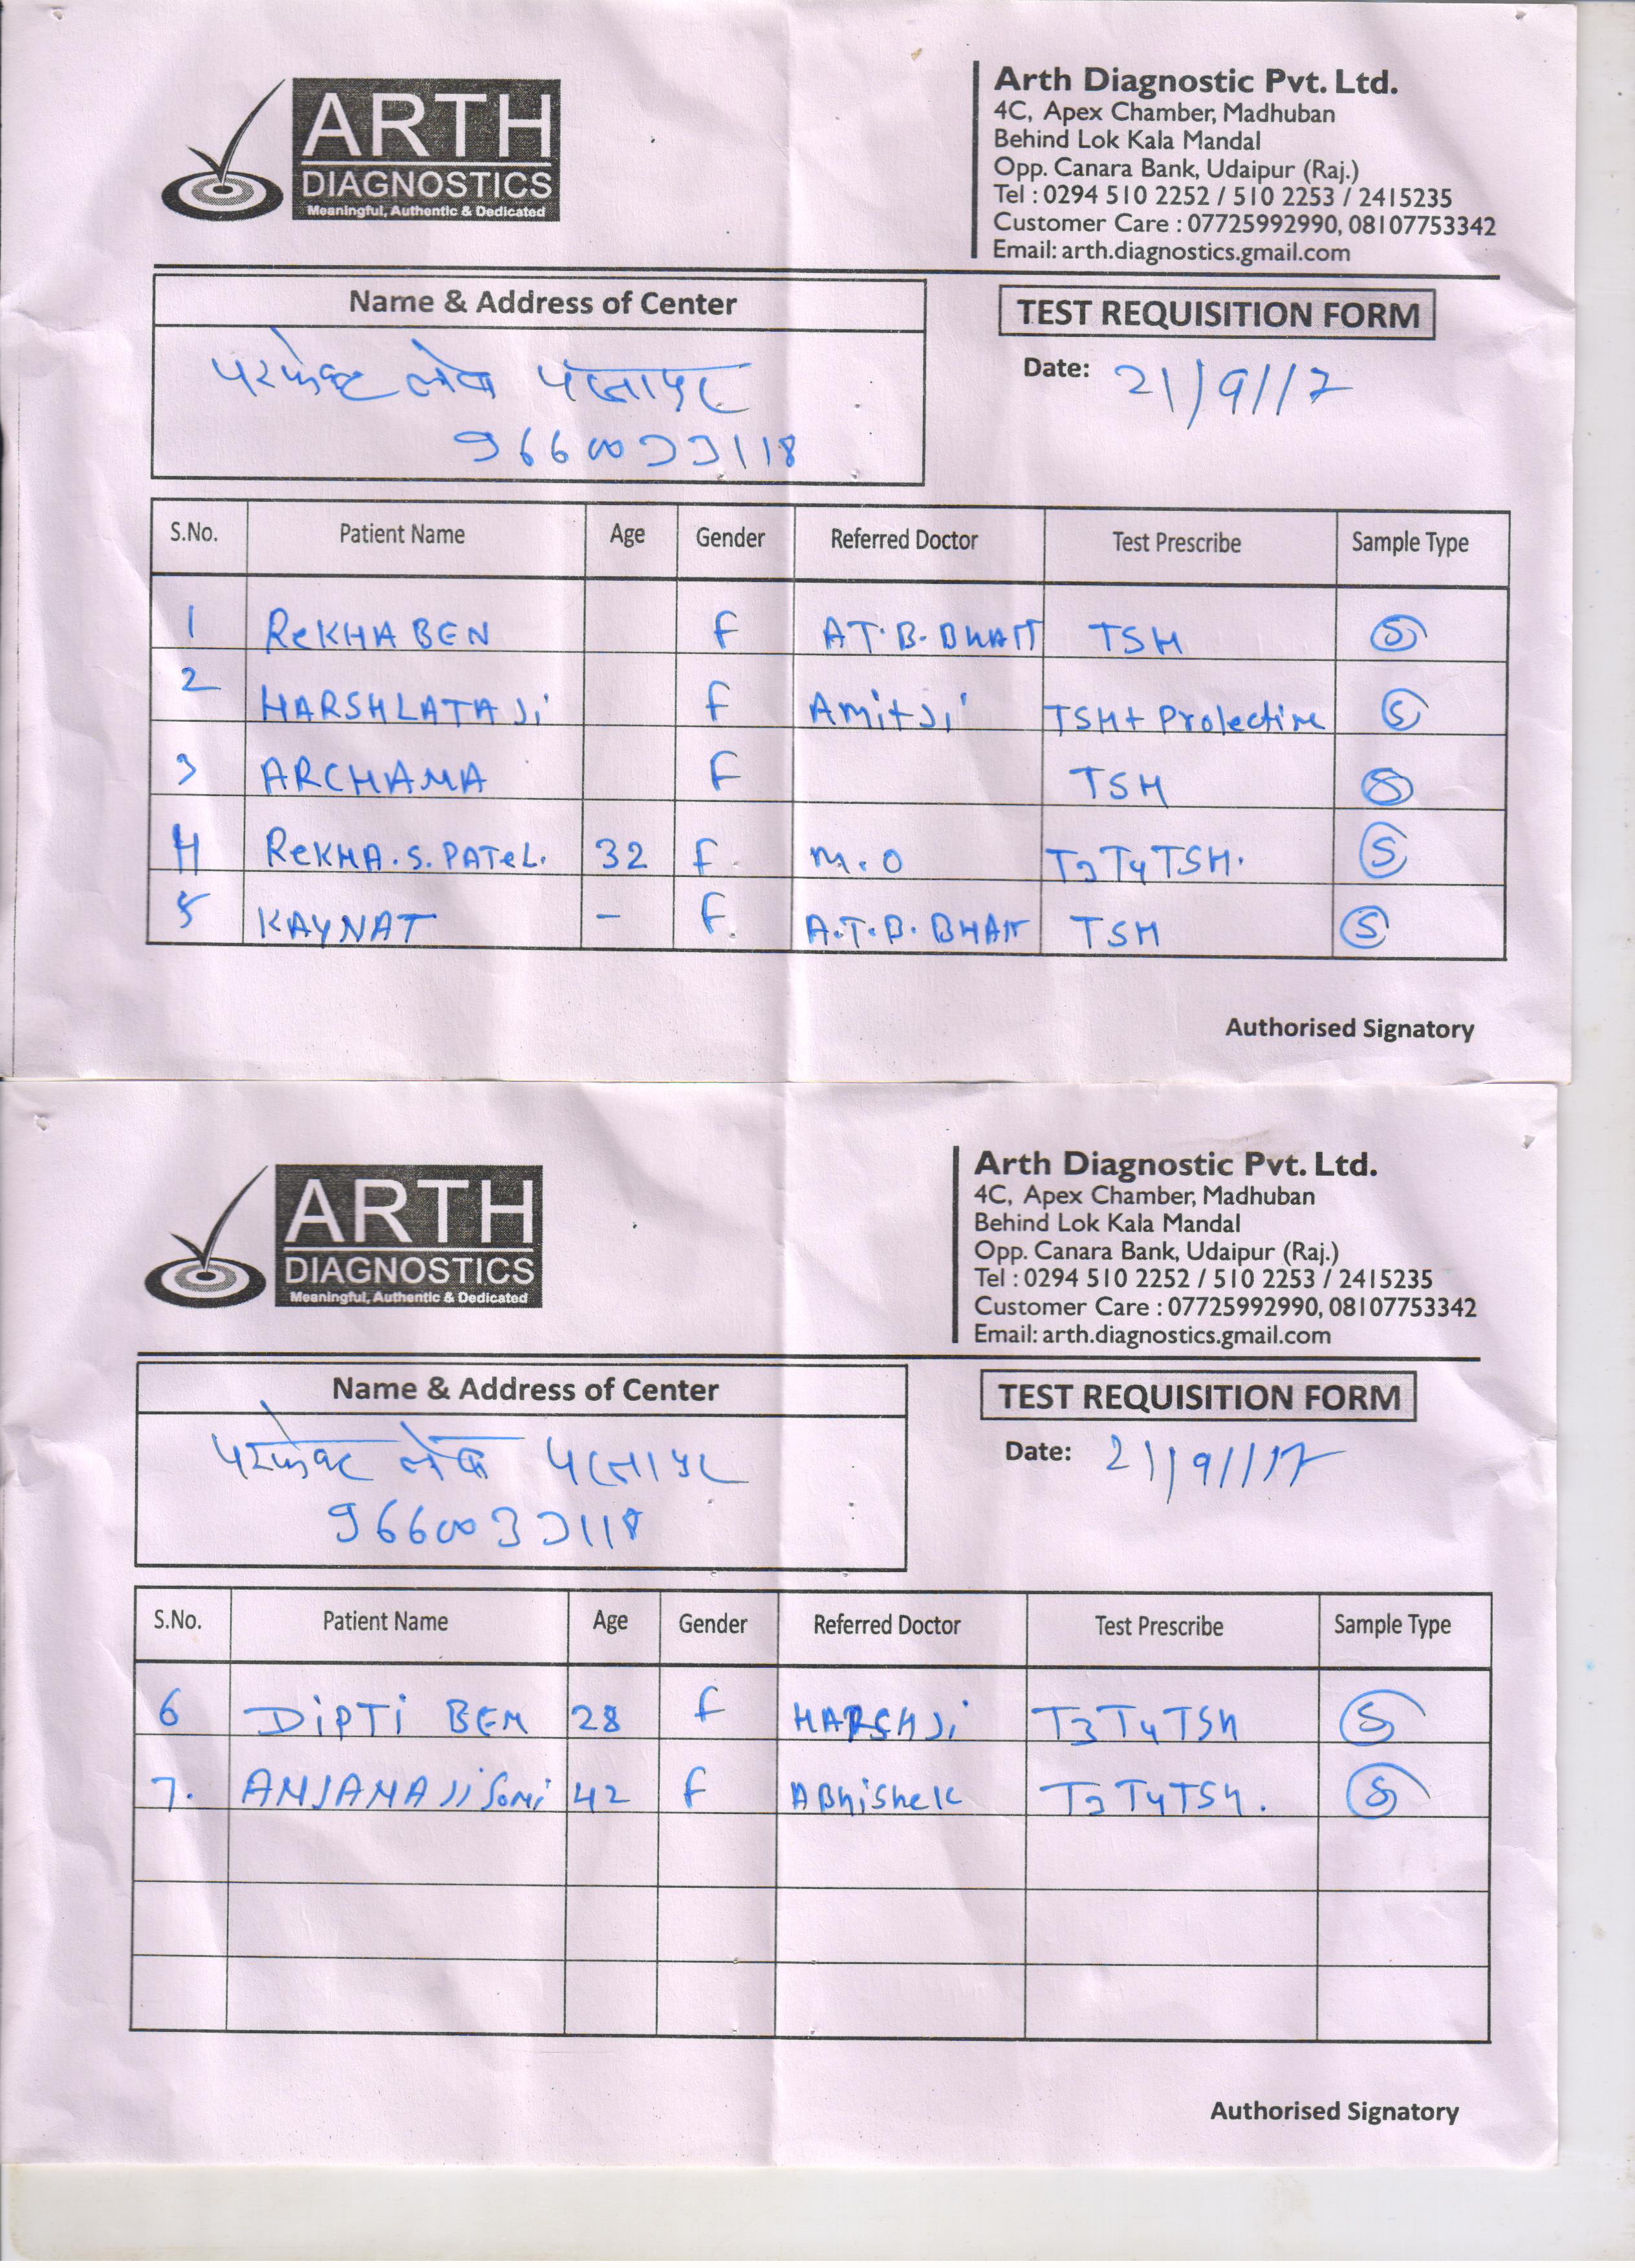 ARTH
DIAGNOSTICS
Meaningful, Authentic & Dedicated
Arth Diagnostic Pvt. Ltd.
4C, Apex Chamber, Madhuban
Behind Lok Kala Mandal
Opp. Canara Bank, Udaipur (Raj.)
Tel : 0294 510 2252 / 510 2253 / 2415235
Customer Care : 07725992990, 08107753342
Email: arth.diagnostics.gmail.com
Name & Address of Center
TEST REQUISITION FORM
परफेक्ट लेब
Date: 21/9/17
9660033118
S.No. Patient Name Age Gender Referred Doctor Test Prescribe Sample Type
1 ReKHA BEN F A T. B. BHATT TSH S
2 HARSHLATA Ji F Amit Ji TSH+ Prolectine S
3 ARCHANA F TSH S
4 ReKHA. S. PATeL. 32 F. M. O T3 T4 TSH. S
5 KAYNAT - F. A.T.B. BHATT TSH S
Authorised Signatory
ARTH
DIAGNOSTICS
Meaningful, Authentic & Dedicated
Arth Diagnostic Pvt. Ltd.
4C, Apex Chamber, Madhuban
Behind Lok Kala Mandal
Opp. Canara Bank, Udaipur (Raj.)
Tel : 0294 510 2252 / 510 2253 / 2415235
Customer Care : 07725992990, 08107753342
Email: arth.diagnostics.gmail.com
Name & Address of Center
TEST REQUISITION FORM
परफेक्ट लेब
Date: 21/9/17
9660033118
S.No. Patient Name Age Gender Referred Doctor Test Prescribe Sample Type
6 DiPTi BEN 28 F HARSH Ji T3 T4 TSH S
7. ANJANA Ji Soni 42 F ABhiShek T3 T4 TSH. S
Authorised Signatory